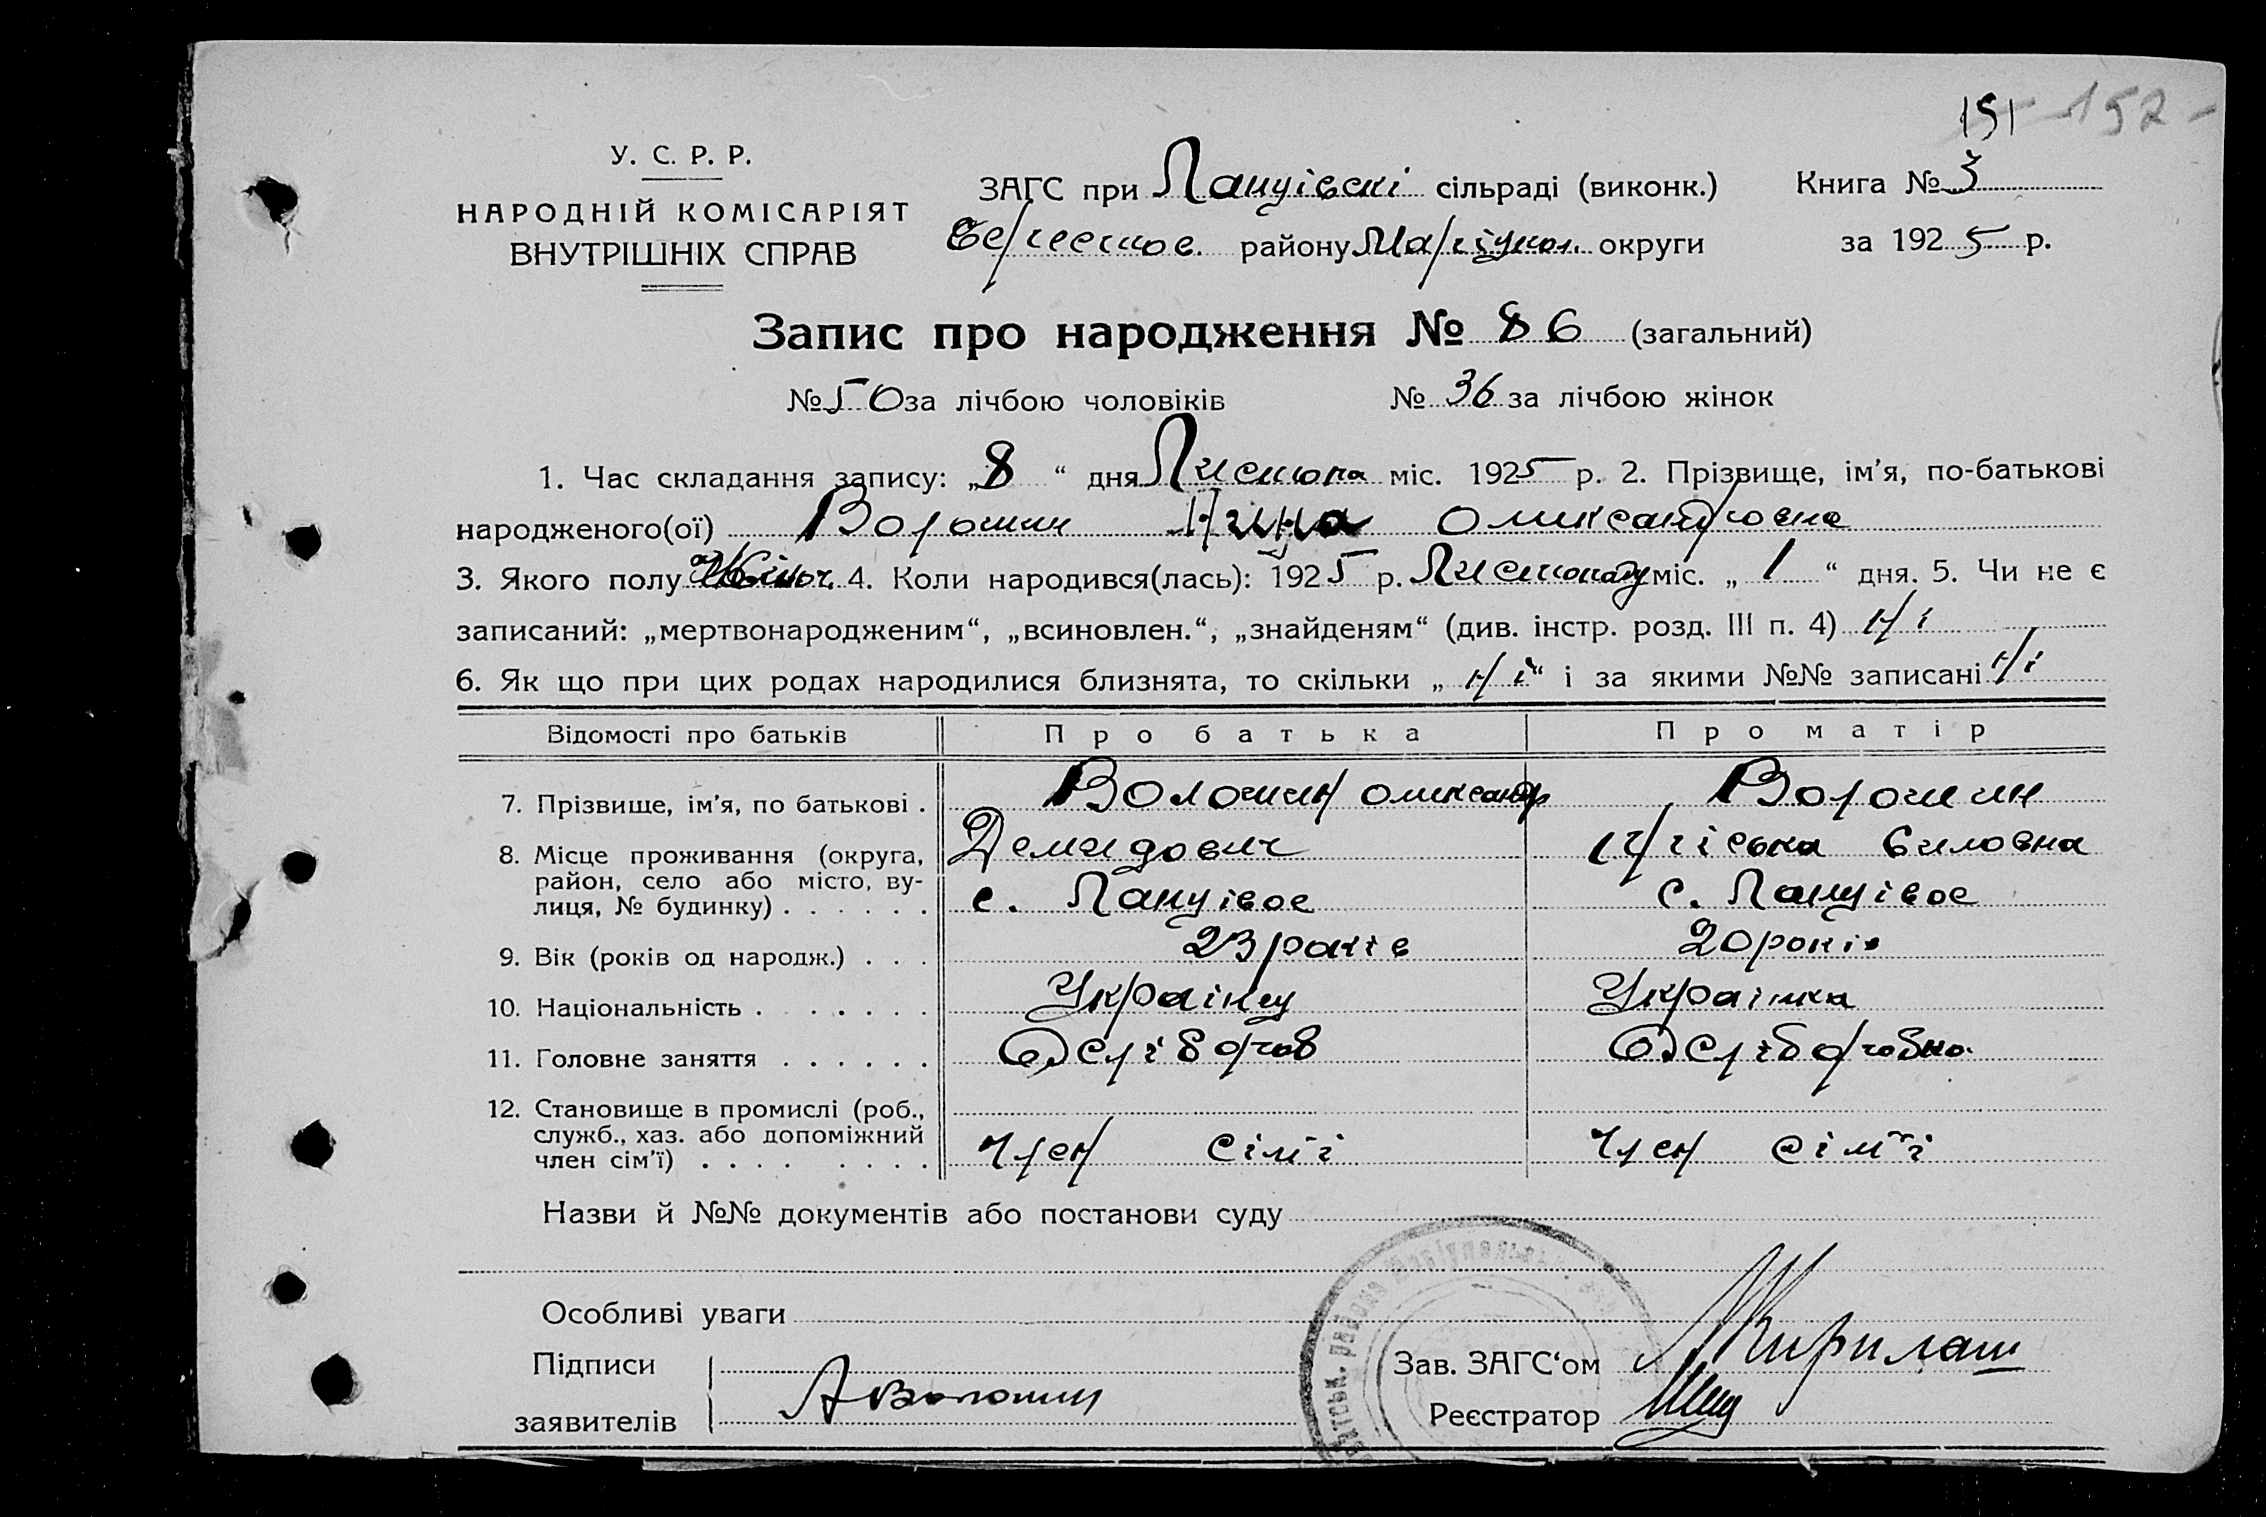 151 - 152 -
У. С. Р. Р.
НАРОДНІЙ КОМІСАРІЯТ
ВНУТРІШНІХ СПРАВ
ЗАГС при Ланцівскі сільраді (виконк.)
району Маріупол. округи
Книга № 3
за 1925 р.
Запис про народження № 86 (загальний)
№ 50 за лічбою чоловіків № 36 за лічбою жінок
1. Час складання запису: „8“ дня Листопа міс. 1925 р. 2. Прізвище, ім'я, по-батькові
народженого(ої) Волошин Нина Олександровна
3. Якого полу Жіноч. 4. Коли народився(лась): 1925 р. Листопаду міс. „1“ дня. 5. Чи не є
записаний: „мертвонародженим“, „всиновлен.“, „знайденям“ (див. інстр. розд. III п. 4) Ні
6. Як що при цих родах народилися близнята, то скільки „Ні“ і за якими №№ записані Ні
Відомості про батьків Про батька Про матір
7. Прізвище, ім'я, по батькові . Волошин Олександр Волошин
Демидович Силовна
8. Місце проживання (округа,
район, село або місто, ву-
лиця, № будинку) . . . . . . с. Ланцівое с. Ланцівое
9. Вік (років од народж.) . . . 23 років 20 років
10. Національність . . . . . . . Украінец Украінка
11. Головне заняття . . . . . .
12. Становище в промислі (роб.,
служб., хаз. або допоміжний
член сім'ї) . . . . . . . . член сімї член сімї
Назви й №№ документів або постанови суду
Особливі уваги
Підписи
заявителів А Волошин
Зав. ЗАГС‘ом
Реєстратор